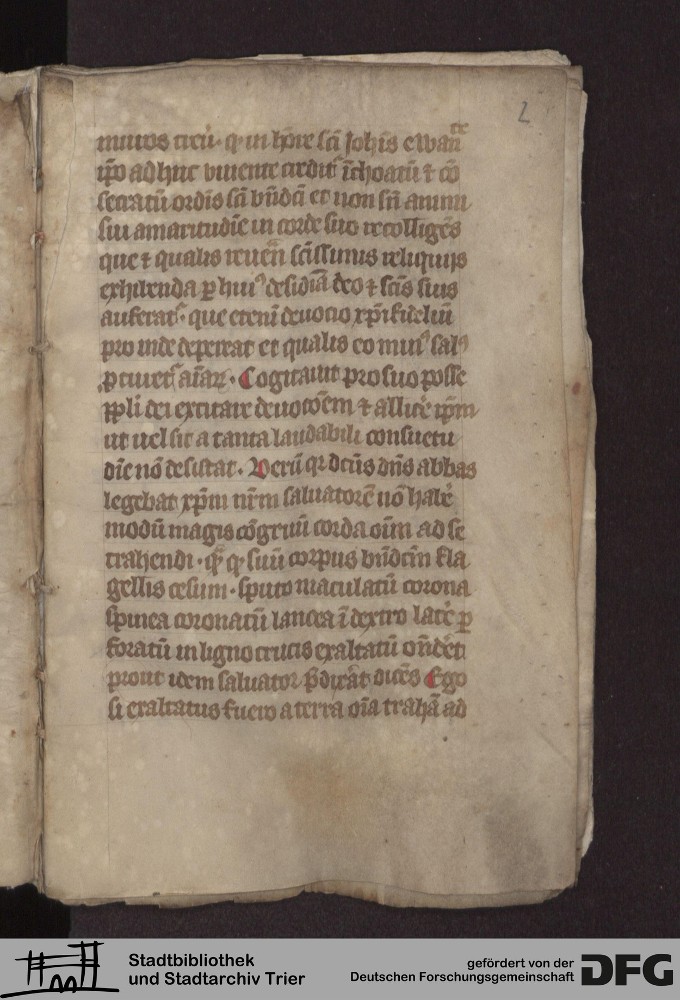 2
muros circū · q in hōre scī Johīs ewan te
ip̄o adhuc viuente credit᷒ īchoatū ⁊ cō
secratū ordīs scī bn̄dcī et non sn̄ animi
sui amaritudīe in corde suo recolligēs
que ⁊ qualis reuēn scīssimis reliquijs
exhibenda ꝑ hui᷒ desidiā deo ⁊ scīs suis
auferat᷒ · que etenī deuocio xp̄i fideliū
pro inde depereat et qualis eo min᷒ sal᷒
ꝓcuret᷒ aīaꝝ · Cogitauit pro suo posse
ppl̄i dei excitare deuotōem ⁊ allicē ip̄m
ut uel sic a tanta laudabili consuetu
dīe nō desistat · Verū qr dcūs dn̄s abbas
legebat xp̄m nr̄m saluatorē nō habē
modū magis cōgruū corda oīm ad se
trahendi · qͣ q suū corpus bn̄dcm̄ fla
gellis cesum · sputo maculatū corona
spinea coronatū lancea ī dextro latē ꝑ
foratū in ligno crucis exaltatū on̄dēt
prout idem saluator p̄dixāt dicēs Ego
si exaltatus fuero a terra oīa trahā ad
Stadtbibliothek
und Stadtarchiv Trier
gefördert von der
Deutschen Forschungsgemeinschaft
DFG